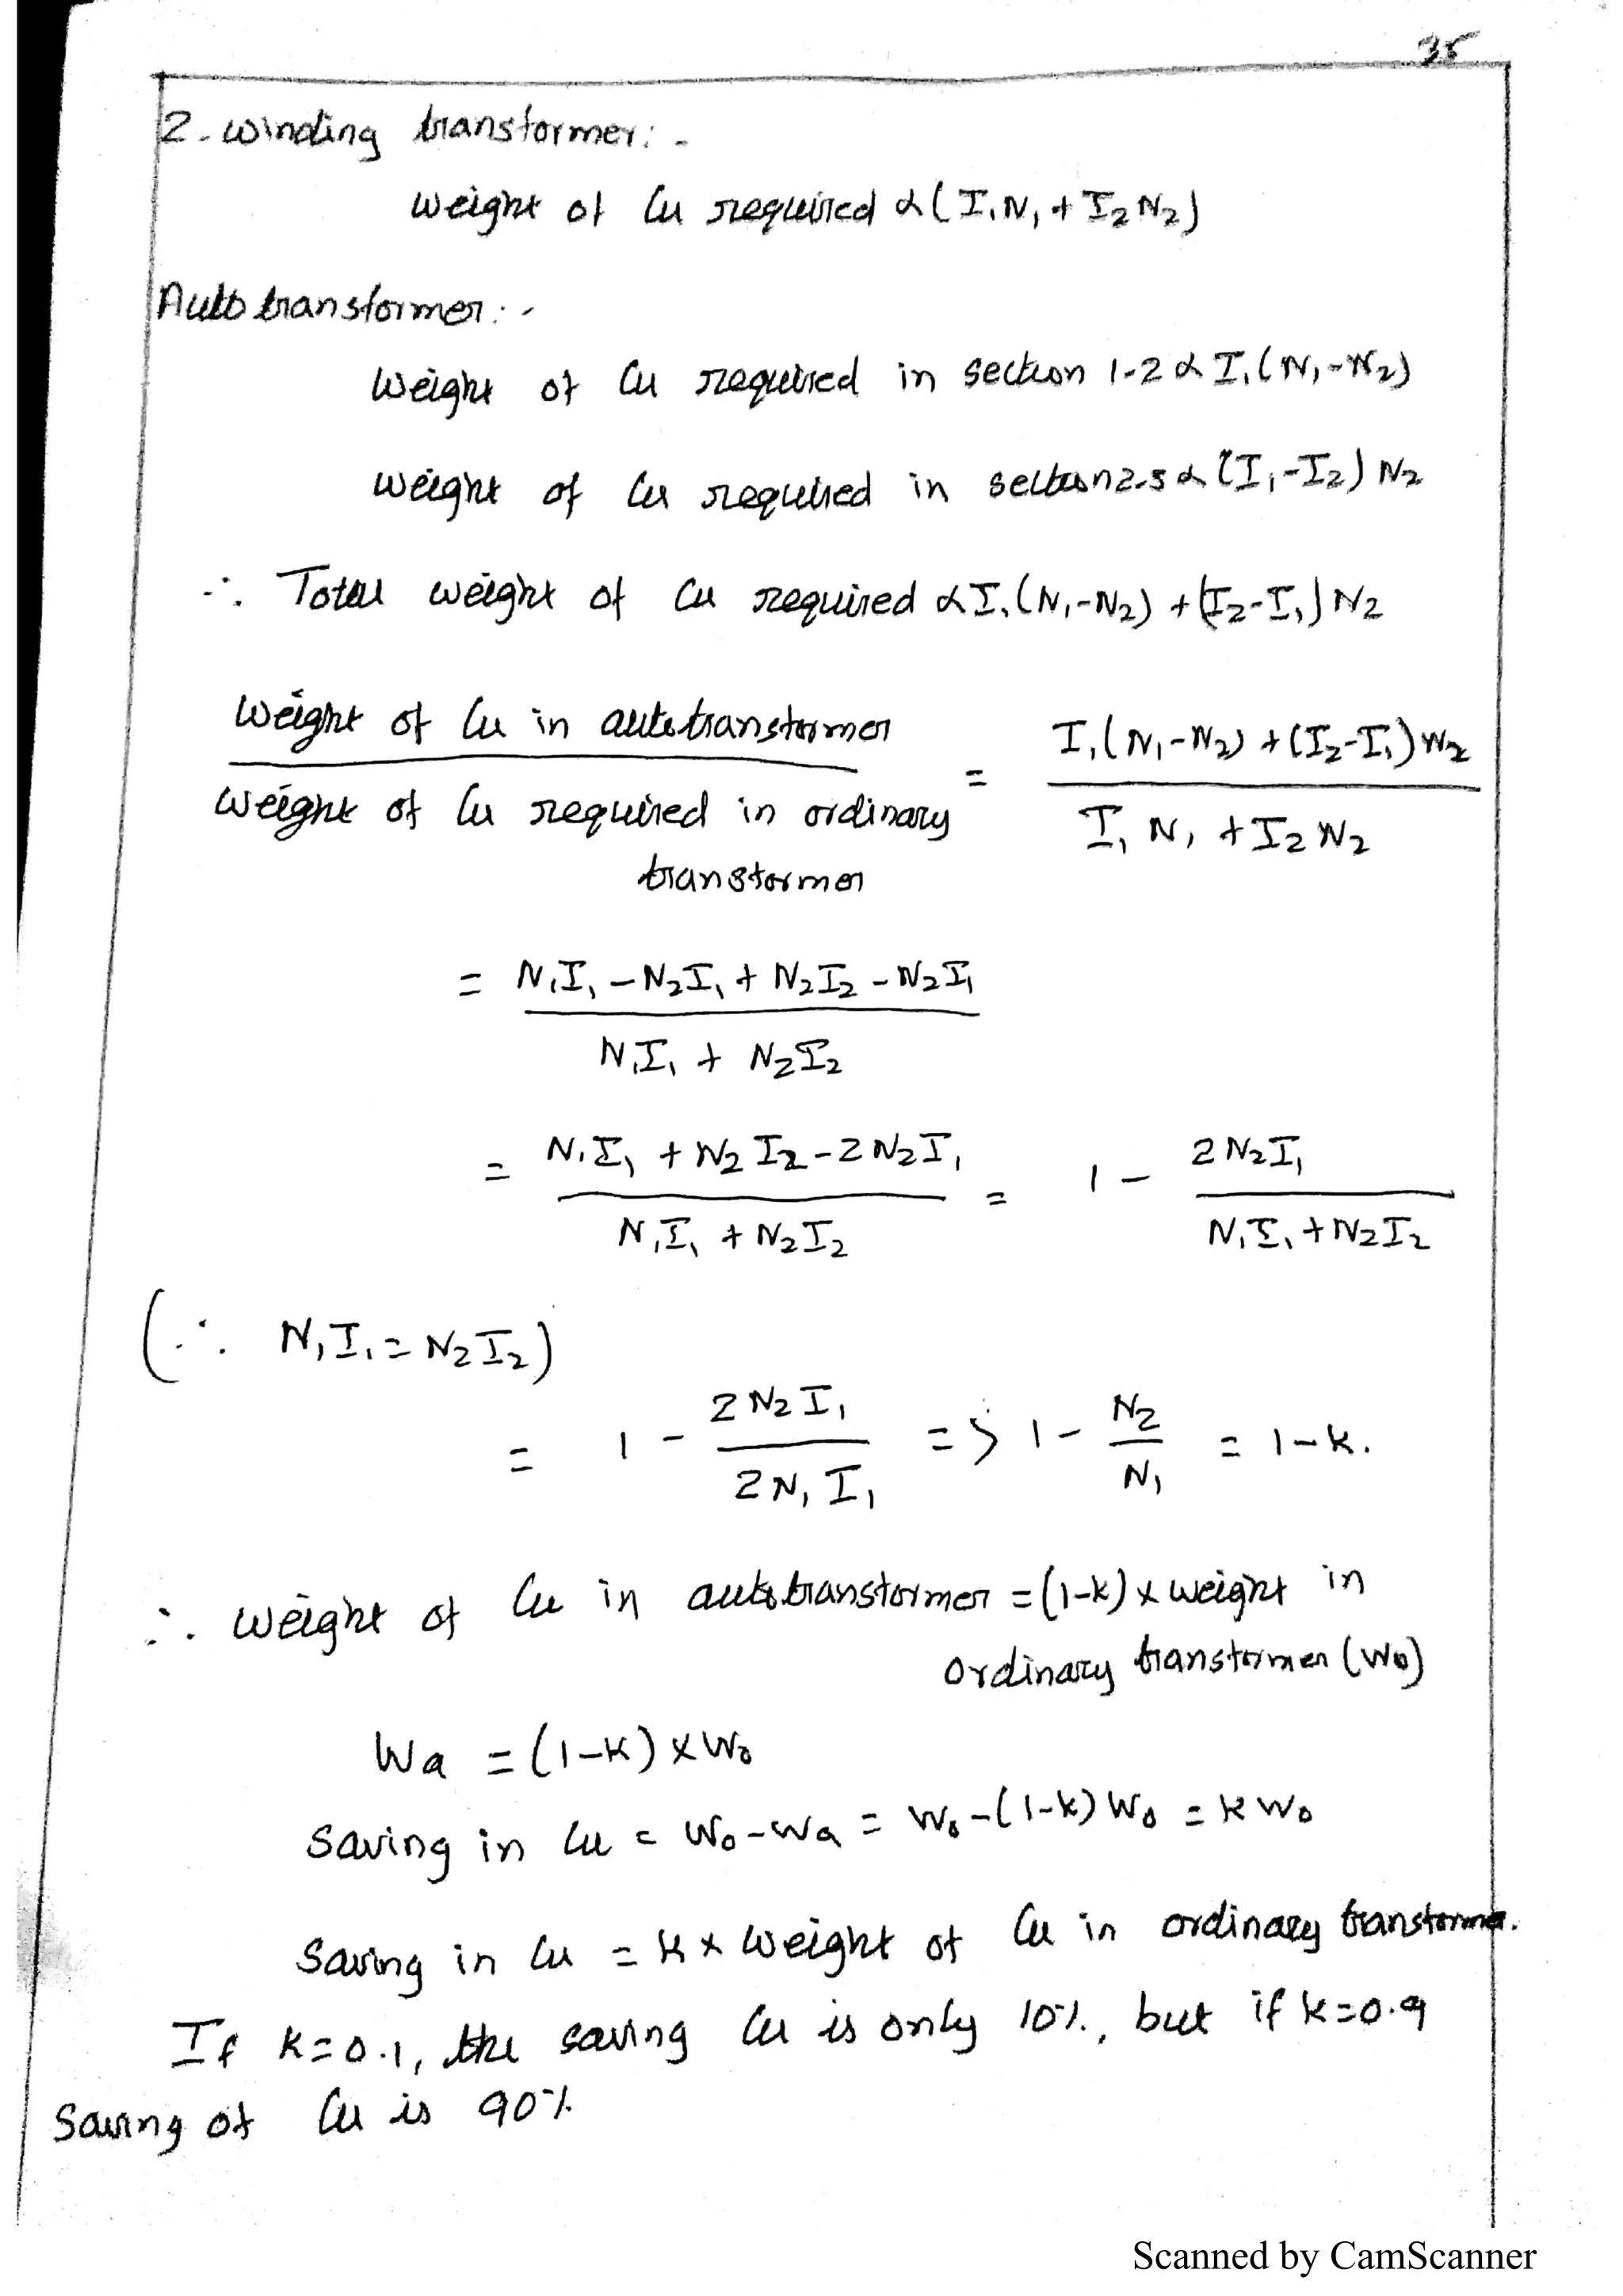 35
2-winding transformer:-
Weight of Cu required α (I₁N₁ + I₂N₂)
Auto transformer:-
Weight of Cu required in section 1-2 α I₁(N₁-N₂)
Weight of Cu required in section 2-3 α (I₁-I₂) N₂
∴ Total weight of Cu required α I₁(N₁-N₂) + (I₂-I₁) N₂
Weight of Cu in autotransformer / Weight of Cu required in ordinary transformer = I₁(N₁-N₂) + (I₂-I₁) N₂ / I₁N₁ + I₂N₂
= N₁I₁ - N₂I₁ + N₂I₂ - N₂I₁ / N₁I₁ + N₂I₂
= N₁I₁ + N₂I₂ - 2N₂I₁ / N₁I₁ + N₂I₂ = 1 - 2N₂I₁ / N₁I₁ + N₂I₂
(∵ N₁I₁ = N₂I₂)
= 1 - 2N₂I₁ / 2N₁I₁ => 1 - N₂ / N₁ = 1-k.
∴ Weight of Cu in autotransformer = (1-k) x weight in
ordinary transformer (W₀)
Wa = (1-k) x W₀
Saving in Cu = W₀-Wa = W₀-(1-k) W₀ = kW₀
Saving in Cu = k x weight of Cu in ordinary transformer.
If k=0.1, the saving Cu is only 10%, but if k=0.9
Saving of Cu is 90%
Scanned by CamScanner